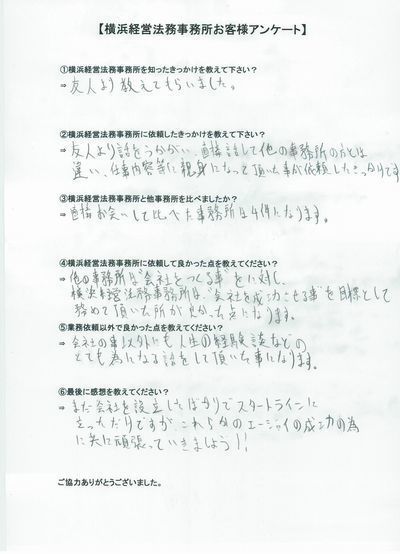 【横浜経営法務事務所お客様アンケート】
①横浜経営法務事務所を知ったきっかけを教えて下さい?
⇒友人より教えてもらいました。
②横浜経営法務事務所に依頼したきっかけを教えて下さい?
⇒友人より話をうかがい、直接話して他の事務所の方とは
違い、仕事内容等に親身になって頂いた事が依頼したきっかけです
③横浜経営法務事務所と他事務所を比べましたか?
⇒直接お会いして比べた事務所は4件になります。
④横浜経営法務事務所に依頼して良かった点を教えてください?
⇒他の事務所は"会社をつくる事"をに対し、
横浜経営法務事務所は、"会社を成功させる事"を目標として
務めて頂いた所が良かった点になります。
⑤業務依頼以外で良かった点を教えてください?
⇒会社の事以外にも人生の経験談などの
とても為になる話をして頂いた事になります。
⑥最後に感想を教えてください?
⇒まだ会社を設立したばかりでスタートラインに
立っただけですが、これからのエージェイの成功の為
に共に頑張っていきましょう!!
ご協力ありがとうございました。